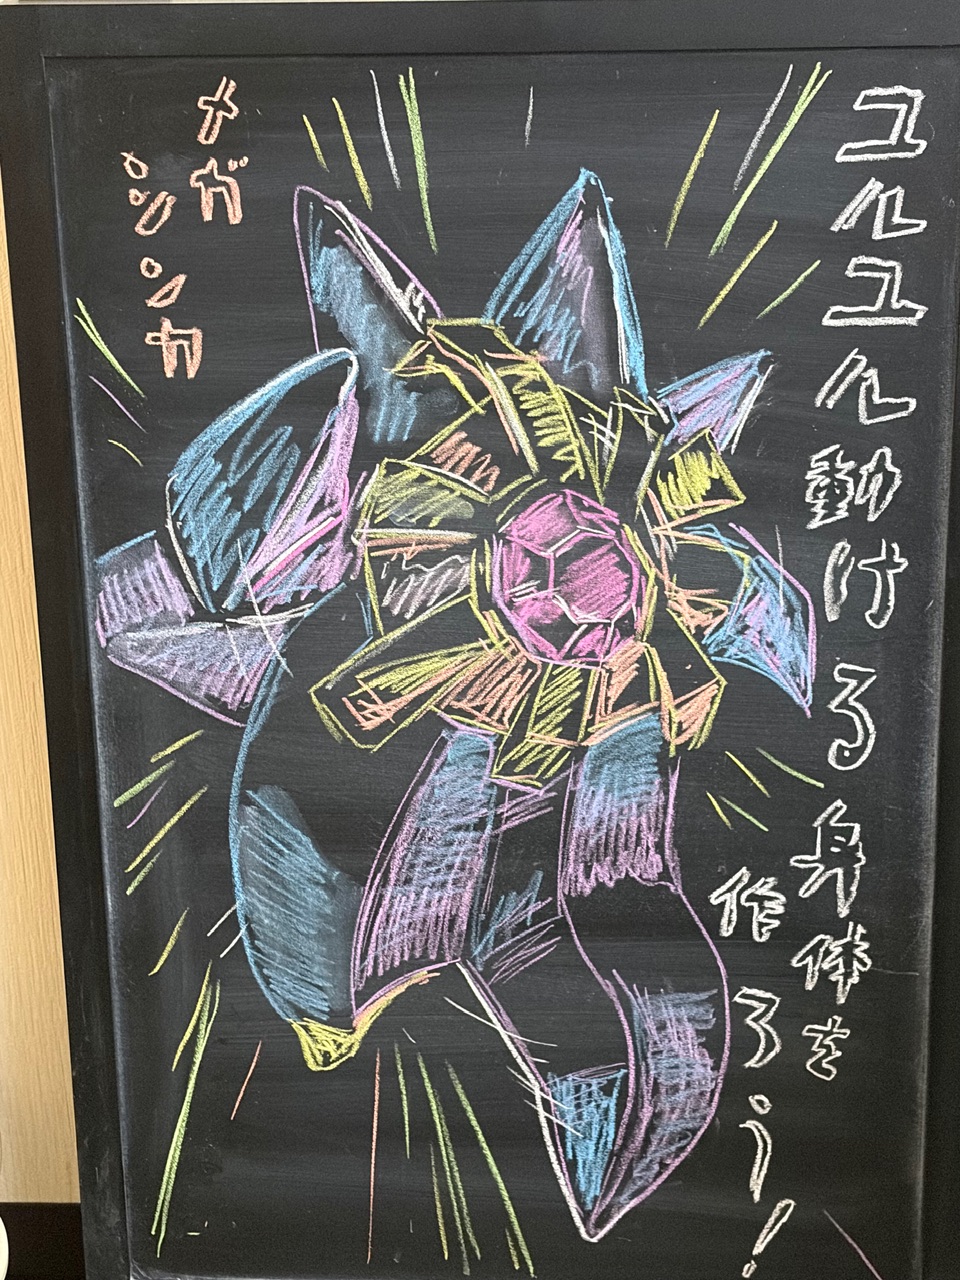 ユルユル動ける身体を
作ろう!
メガ
シンカ